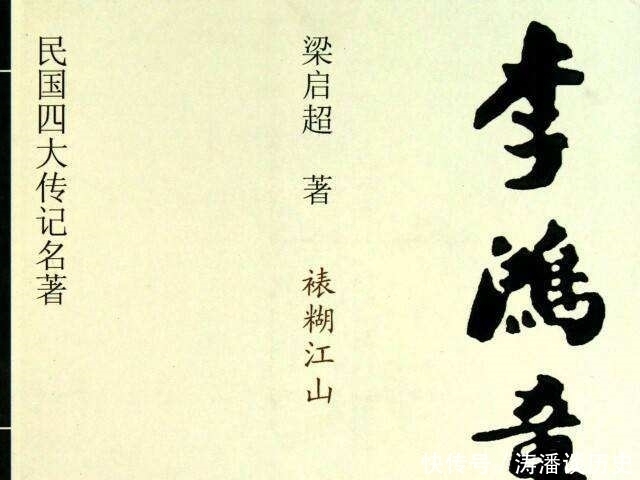 李鴻章
梁启超 著
裱糊江山
民国四大传记名著
快传号
涛潘